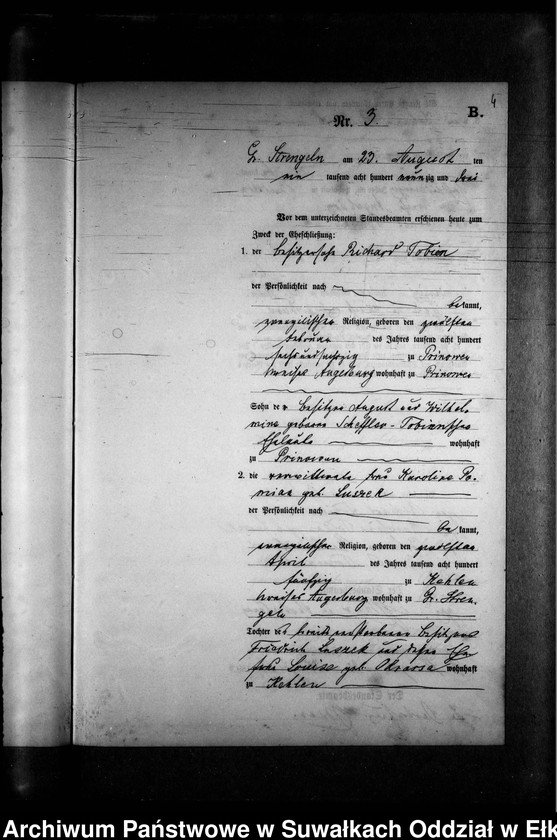 4
B.
Nr. 3.
Gr. Strengeln am 23. August ten
ein tausend acht hundert neunzig und drei
Vor dem unterzeichneten Standesbeamten erschienen heute zum
Zweck der Eheschließung:
1. der Besitzersohn Richard Tobien
der Persönlichkeit nach
bekannt,
evangelischer Religion, geboren den zwölften
Februar des Jahres tausend acht hundert
sechsundsechzig zu Prinowen
Kreises Angerburg wohnhaft zu Prinowen
Sohn der Besitzer August und Wilhel-
mine geborene Scheffler-Tobienschen
Eheleute wohnhaft
zu Prinowen
2. die verwittwete Frau Karoline
geb. Laszek
der Persönlichkeit nach
bekannt,
evangelischer Religion, geboren den zwölften
April des Jahres tausend acht hundert
fünfzig zu Kehlen
Kreises Angerburg wohnhaft zu Gr. Stren-
geln
Tochter des bereits verstorbenen Besitzers
Friedrich Laszek und dessen Ehe-
frau Louise geb. wohnhaft
zu Kehlen
Archiwum Państwowe w Suwałkach Oddział w Ełk